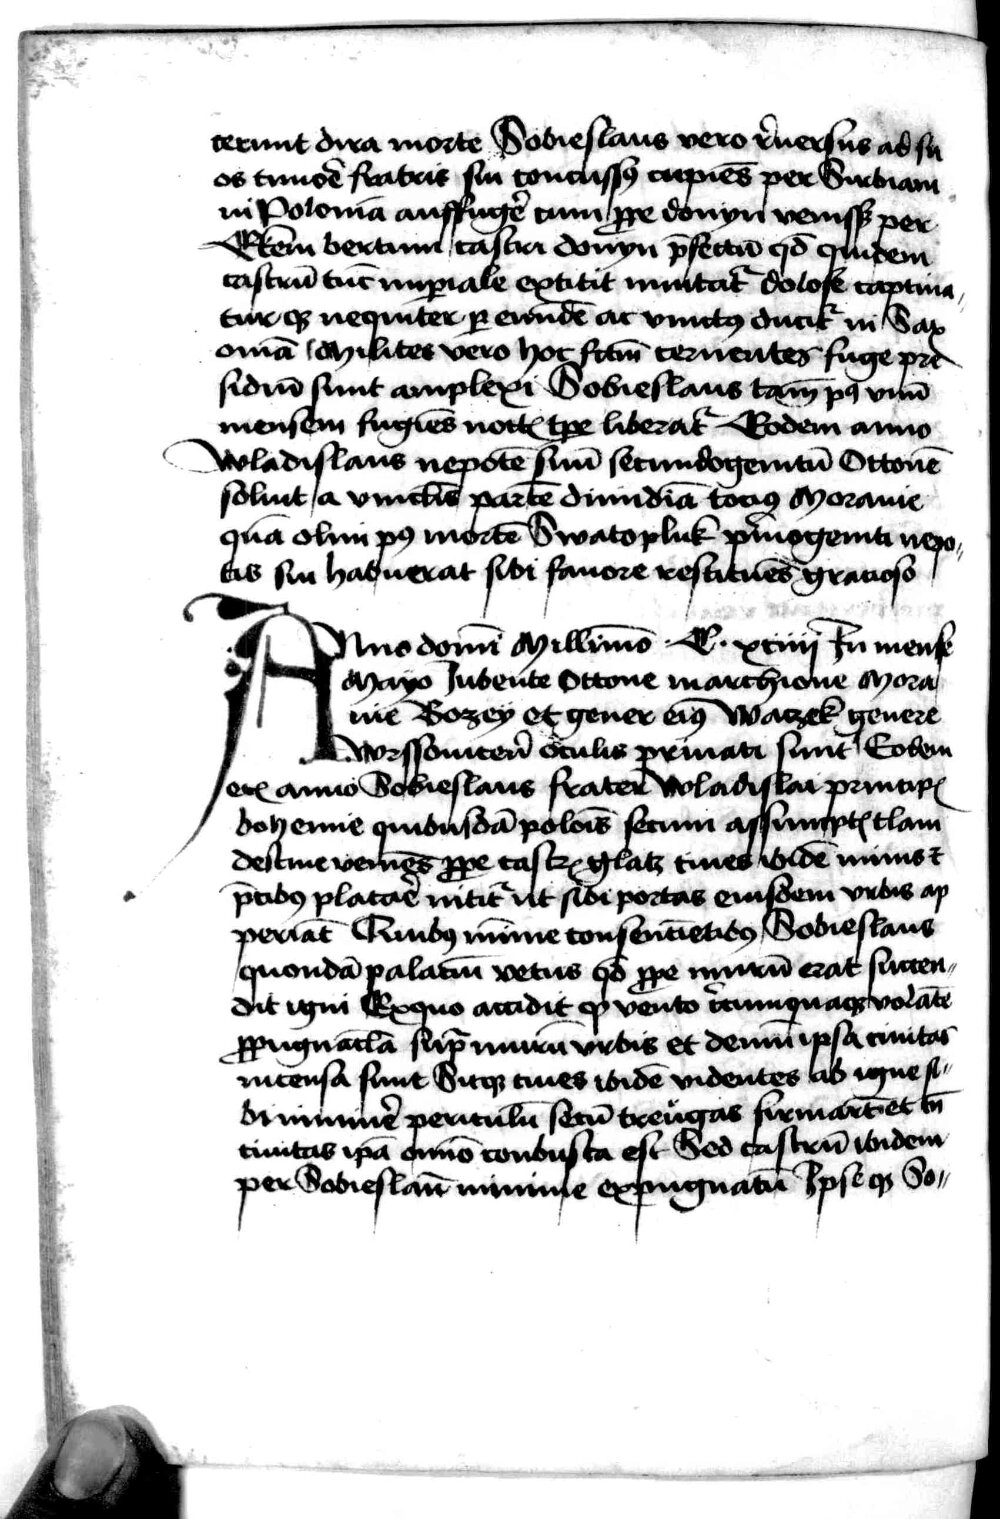 terunt dira morte Sobieslaus vero r̄uersus ad su
os timoē fratris sui concussꝰ cupiēs per Surbiam
in Poloniā auffugē̄ cum ꝓpe donyn venissꝫ per
Erkēm bertum castri donyn p̄fectū qd̄ quidem
castrū tūc imꝑiale extitit inuitat᷑ dolose captiua„
tur qꝫ nequiter ꝑ eundē ac vinctꝰ ducit᷑ in Sax
oniā Milites vero hoc fc̄m cernentes fuge pre
sidiū sunt amplexi Sobieslaus tam̄ pꝰ vnū
mensem fugiēs noctꝭ tꝑe liberat᷑ Eodem anno
Wladislaus nepotē suū secundogenitū Ottonē
soluit a vinclīs partē dimidiā tociꝰ Morauie
quā olim pꝰ mortē Swatopluk p̄mogeniti nepo„
tis sui habuerat sibi fauore restituēs gracioso
Anno domī Millīmo · C · xciiij In mense
Mayo Jubente Ottone marchione Mora
uie Bozey et gener eiꝰ Waczek genere
Wrssouicen̄ oculis priuati sunt Eodem
ecꝭ anno Sobieslaus frater Wladislai principꝭ
bohemie quibusdā polōis secum assumptꝭ clam
destine veniēs ꝓpe castꝝ glatz ciues ibidē minis ⁊
p̄cibꝰ placāē nitit᷑ vt sibi portas eiusdem vrbis ap
periāt Quibꝰ mīme consencietibꝰ Sobieslaus
quondā palaciū vetus qd̄ ꝓpe murū erat succen„
dit igni Exquo accidit ꝙ vento c̄cumquaqꝫ volātē
ꝓpugnacl̄a sup̄ murū vrbis et demū ipsa ciuitas
incensa sunt Sicqꝫ ciues ibidē videntes ab igne si„
bi imminē̄ periculū secū treugas firmart̄ et tn̄
ciuitas ipā om̄o conbusta est Sed castrū ibidem
per Sobieslaū minime expugnatū Ipse qꝫ So„